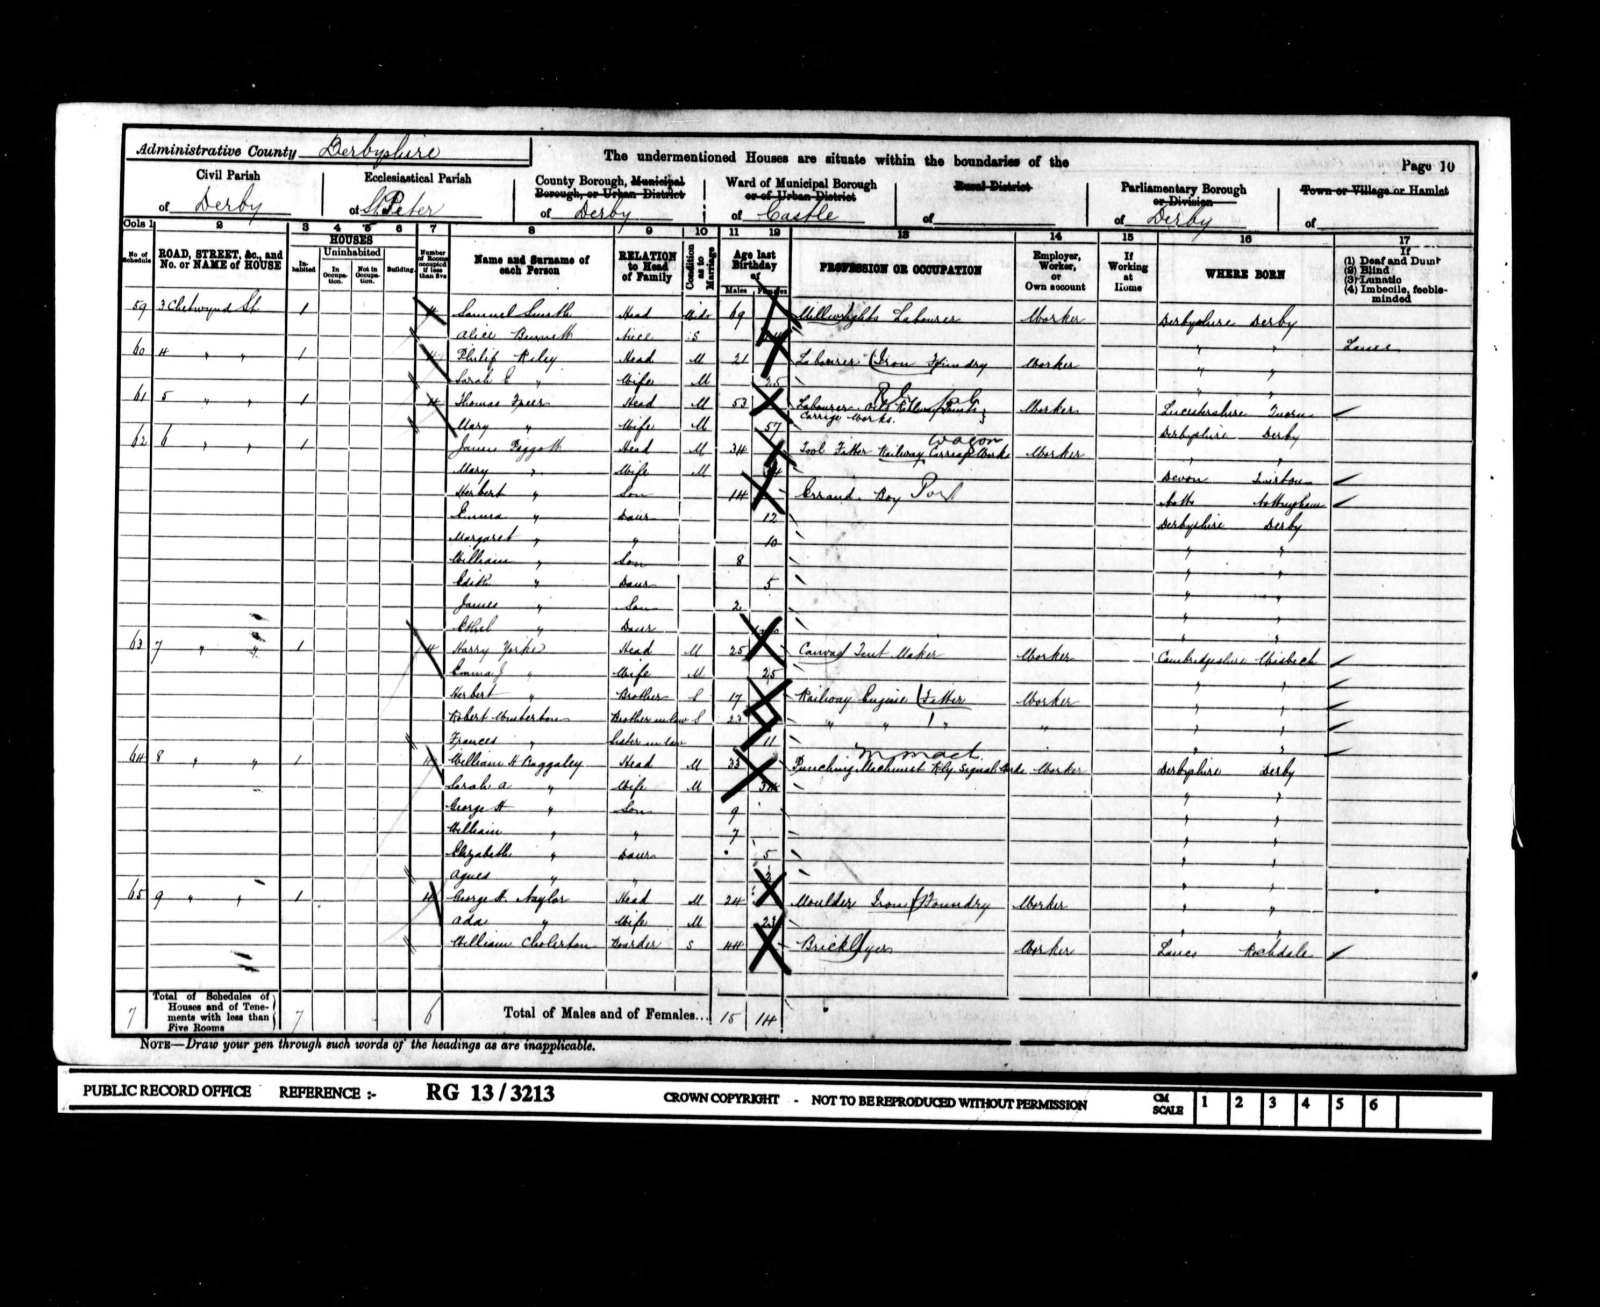 Administrative County Derbyshire
The undermentioned Houses are situate within the boundaries of the
Page 10
Civil Parish
of Derby
Ecclesiastical Parish
of St. Peter
County Borough, Municipal Borough, or Urban District
of Derby
Ward of Municipal Borough or of Urban District
of Castle
Rural District
of
Parliamentary Borough or Division
of Derby
Town or Village or Hamlet
of
Cols 1 2 3 4 5 6 7 8 9 10 11 12 13 14 15 16 17
No. of Schedule
ROAD, STREET, &c., and No. or NAME of HOUSE
HOUSES
In-habited
Uninhabited
In Occupa-tion.
Not in Occupa-tion.
Building.
Number of Rooms occupied if less than five
Name and Surname of each Person
RELATION to Head of Family
Condition as to Marriage
Age last Birthday of
Males Females
PROFESSION OR OCCUPATION
Employer, Worker, or Own account
If Working at Home
WHERE BORN
If
(1) Deaf and Dumb
(2) Blind
(3) Lunatic
(4) Imbecile, feeble-minded
59 3 Chetwynd St 1 4 Samuel Smith Head Wid 69 Millwrights Labourer Worker Derbyshire Derby
Alice Niece S " "
60 4 " " 1 4 Philip Riley Head M 21 Labourer (Iron Foundry Worker " "
Sarah E " Wife M 25 " "
61 5 " " 1 4 Thomas Freer Head M 53 Labourer Worker Leicestershire
Carriage Works.
Mary " Wife M 57 Derbyshire Derby
62 6 " " 1 James Head M 34 Tool Fitter Railway Carriage Works Wagon Worker " "
Mary " Wife M Devon
Herbert " Son 14 Errand Boy Port Notts Nottingham
Emma " Daur 12 Derbyshire Derby
Margaret " " 10 " "
William " Son 8 " "
Edith " Daur 5 " "
James " Son 2 " "
Ethel " Daur " "
63 7 " " 1 4 Harry Yorke Head M 25 Canvas Tent Maker Worker Cambridgeshire Wisbech
Emma J " Wife M 25 " "
Herbert " Brother S 17 Railway Engine Fitter Worker " "
Robert Brother in law S 23 " " " " " "
Frances " Sister in law 11 " "
64 8 " " 1 4 William H Baggaley Head M 33 Punching Machinist Rly Signal Works Worker Derbyshire Derby
Sarah A " Wife M " "
George H " Son 9 " "
William " " 7 " "
Elizabeth " Daur 5 " "
Agnes " " " "
65 9 " " 1 4 George H. Naylor Head M 24 Moulder Iron (Foundry Worker " "
Ada " Wife M 23 " "
William Cholerton Boarder S 44 Bricklayer Worker Lancs Rochdale
7 Total of Schedules of Houses and of Tene-ments with less than Five Rooms 7 6 Total of Males and of Females... 15 14
NOTE—Draw your pen through such words of the headings as are inapplicable.
PUBLIC RECORD OFFICE REFERENCE :- RG 13 / 3213 CROWN COPYRIGHT - NOT TO BE REPRODUCED WITHOUT PERMISSION CM SCALE 1 2 3 4 5 6